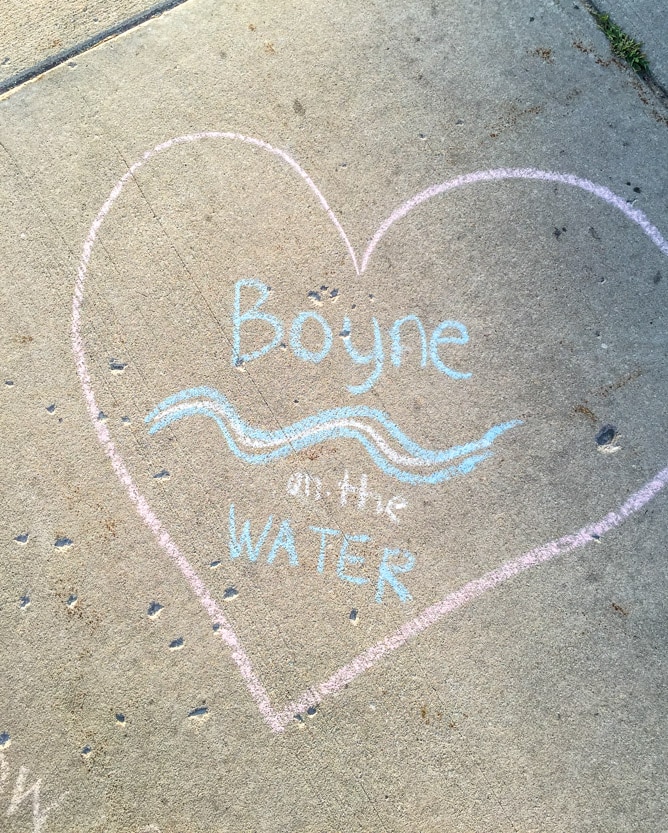 Boyne
on the
WATER